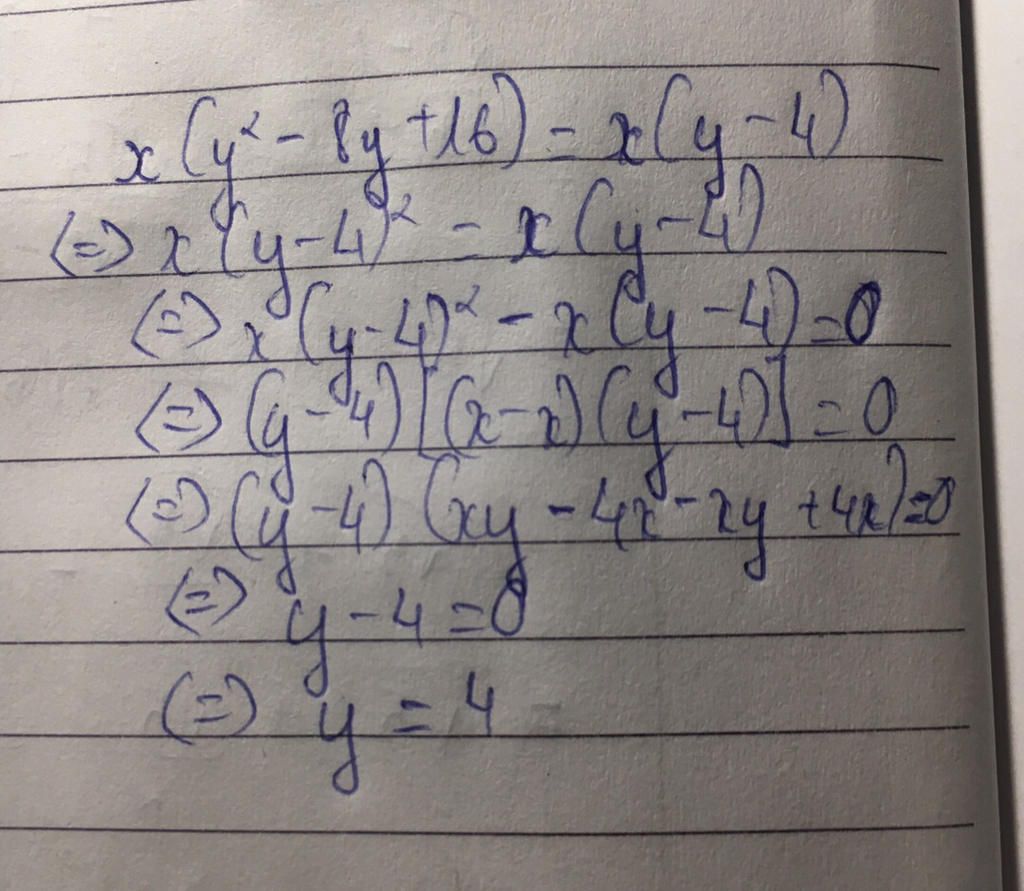 x(y² - 8y + 16) = x(y - 4)
(=) x(y - 4)² = x(y - 4)
(=) x(y - 4)² - x(y - 4) = 0
(=) (y - 4)[(x - x)(y - 4)] = 0
(=) (y - 4)(xy - 4x - xy + 4x) = 0
(=) y - 4 = 0
(=) y = 4